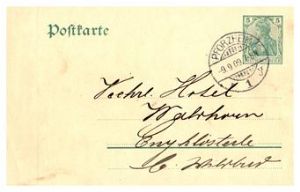 Postkarte
5 5
PFORZHEIM
-9.9.09
1
Hotel
Waldhorn
Enzklösterle
Wildbad